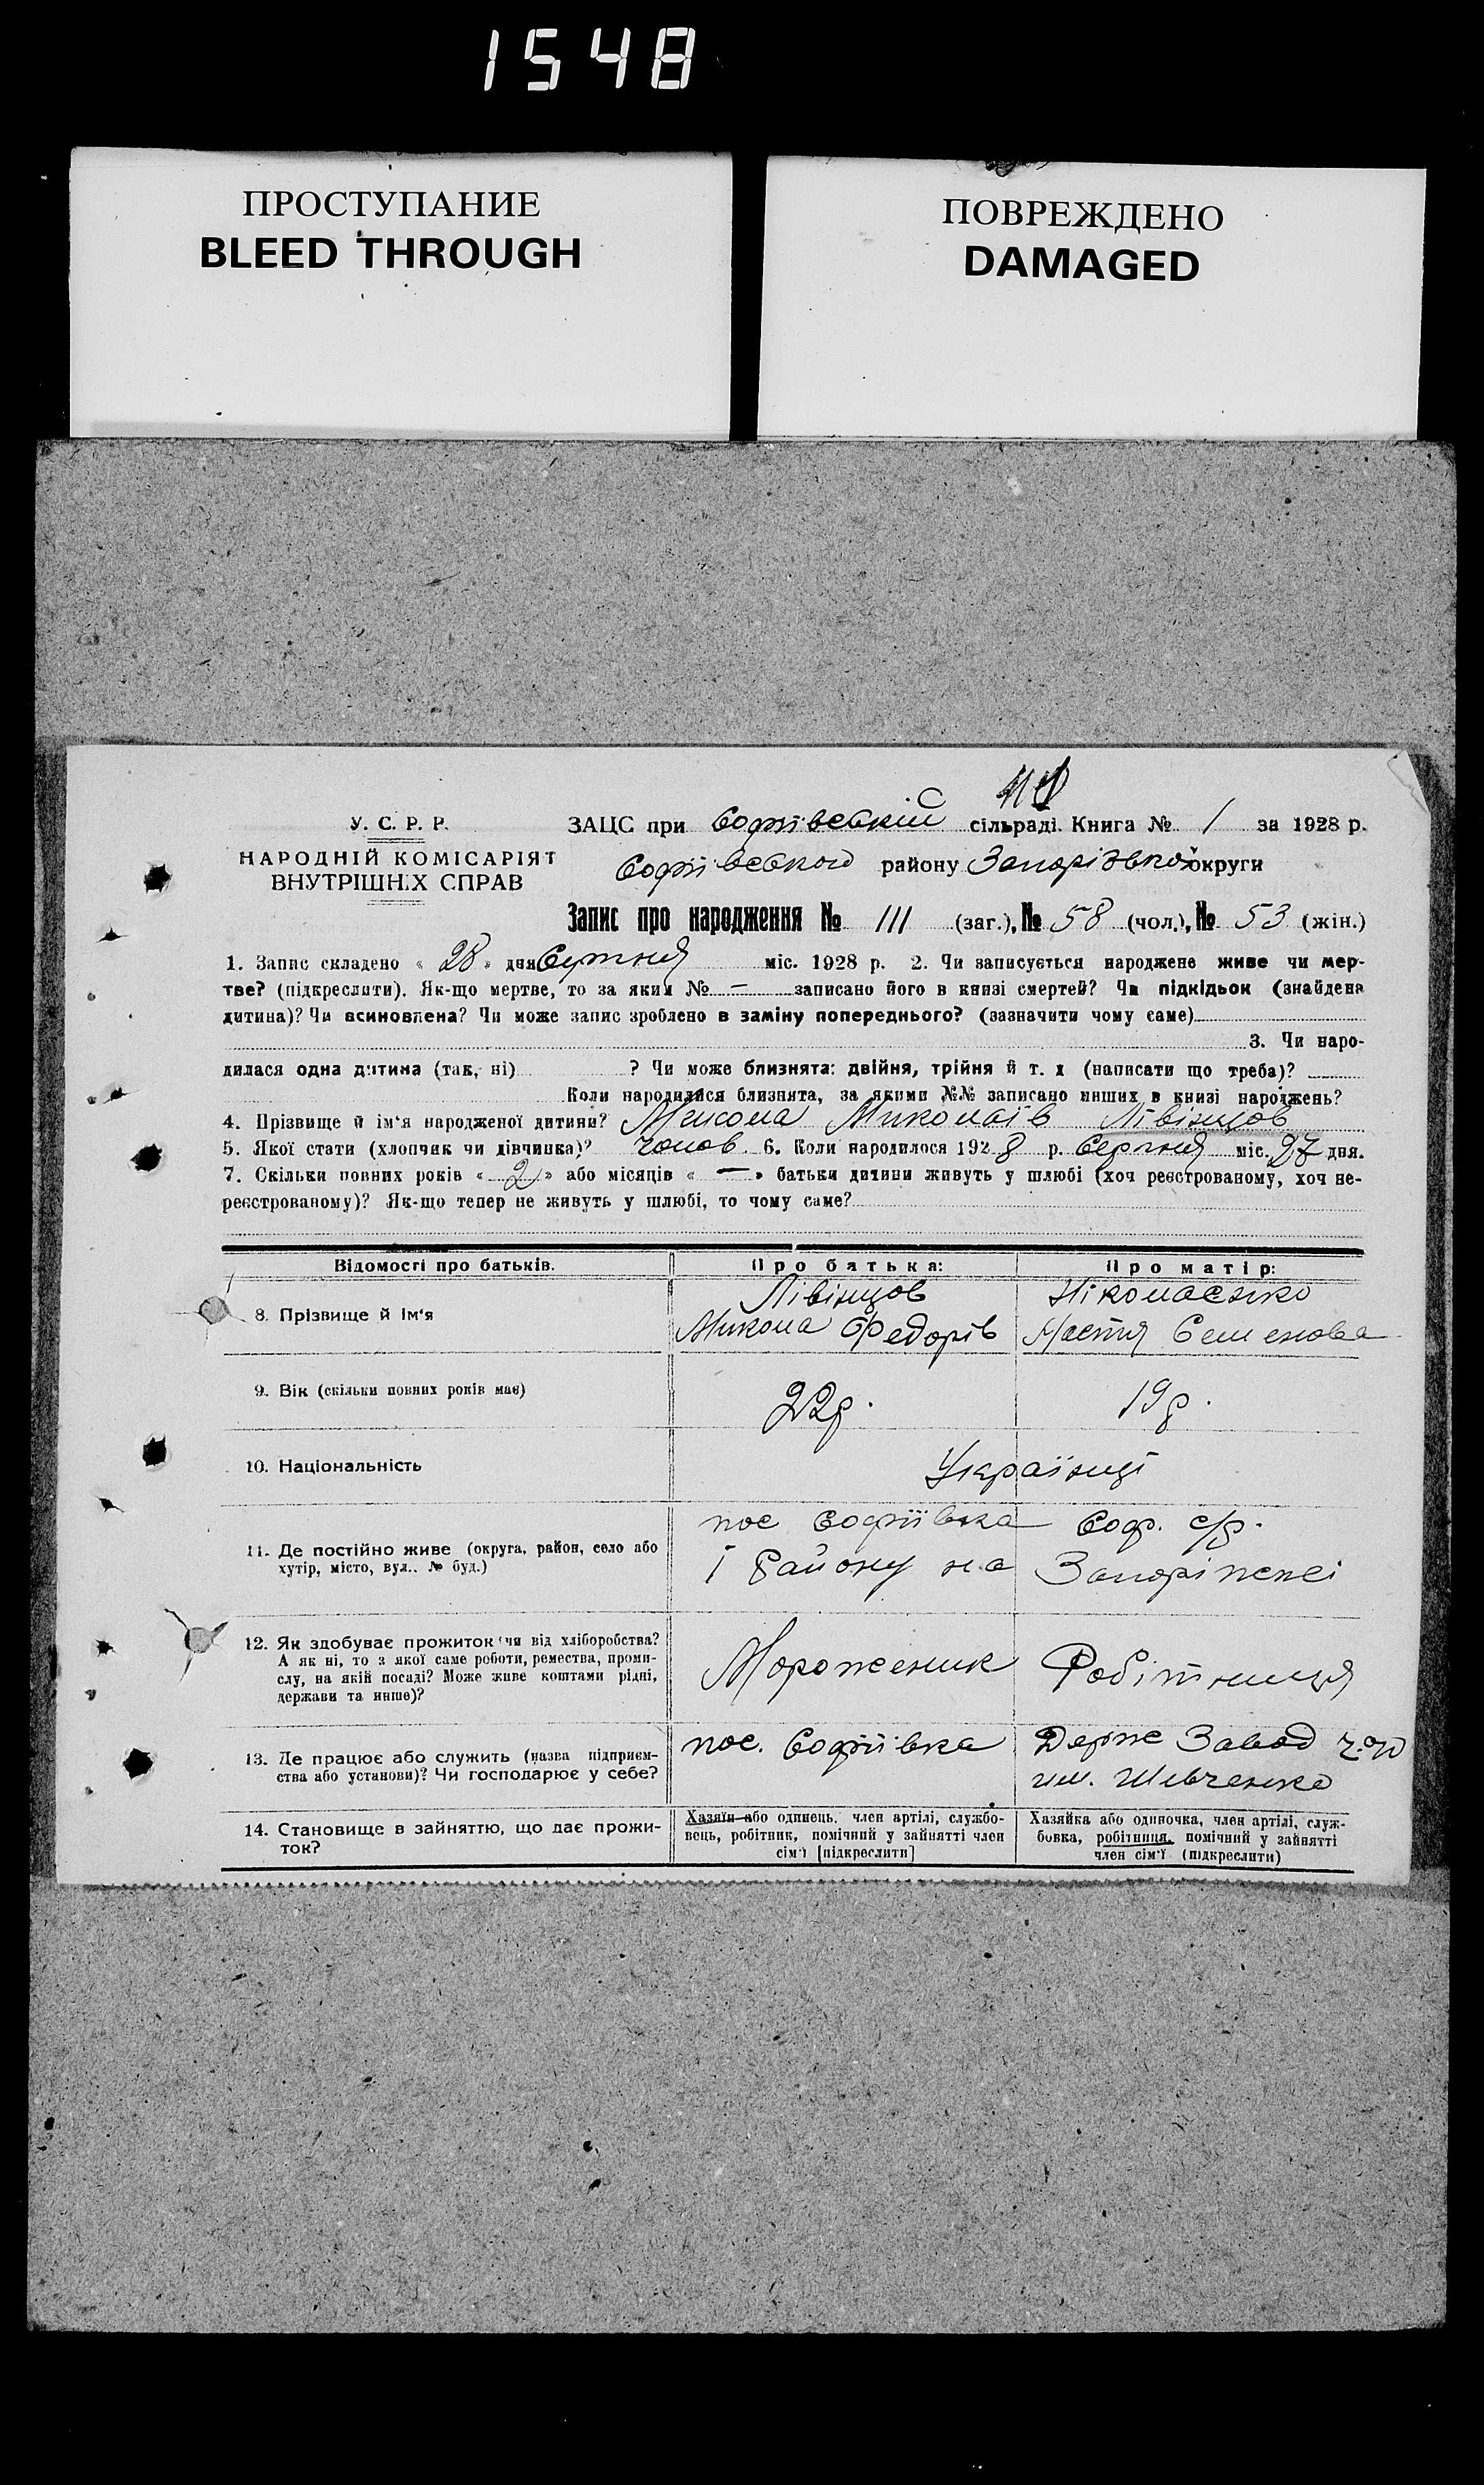 1548
ПРОСТУПАНИЕ
BLEED THROUGH
ПОВРЕЖДЕНО
DAMAGED
У. С. Р. Р.
НАРОДНІЙ КОМІСАРІЯТ
ВНУТРІШНІХ СПРАВ
ЗАЦС при Софіївській сільраді. Книга № 1 за 1928 р.
Софіївського району Запорізької округи
Запис про народження № 111 (заг.), № 58 (чол.), № 53 (жін.)
1. Запис складено « 28 » дня міс. 1928 р. 2. Чи записується народжене живе чи мер-
тве? (підкреслити). Як-що мертве, то за яким № — записано його в книзі смертей? Чи підкідьок (знайдена
дитина)? Чи всиновлена? Чи може запис зроблено в заміну попереднього? (зазначити чому саме)
3. Чи наро-
дилася одна дитина (так, ні) ? Чи може близнята: двійня, трійня й т. д (написати що треба)?
Коли народилися близнята, за якими №№ записано инших в книзі народжень?
4. Прізвище й ім'я народженої дитини? Микола Миколаїв Лівінцов
5. Якої статі (хлопчик чи дівчинка)? чолов 6. Коли народилося 1928 р. Серпня міс. 27 дня.
7. Скільки повних років « 2 » або місяців « — » батьки дитини живуть у шлюбі (хоч реєстрованому, хоч не-
реєстрованому)? Як-що тепер не живуть у шлюбі, то чому саме?
Відомості про батьків.
Про батька:
Про матір:
8. Прізвище й ім'я
Лівінцов
Микола Федорів
Ніколаєнко
Настя Семенова
9. Вік (скільки повних років має)
22 р.
19 р.
10. Національність
Українці
11. Де постійно живе (округа, район, село або
хутір, місто, вул.. № буд.)
пос Софіївка Соф. с/р.
1 Району на Запоріжжі
12. Як здобуває прожиток (чи від хліборобства?
А як ні, то з якої саме роботи, ремества, проми-
слу, на якій посаді? Може живе коштами рідні,
держави та инше)?
Мороженик
Робітниця
13. Де працює або служить (назва підприєм-
ства або установи)? Чи господарює у себе?
пос. Софіївка
Держ Завод
им. Шевченко
14. Становище в зайняттю, що дає прожи-
ток?
Хазяїн або одинець, член артілі, службо-
вець, робітник, помічний у зайнятті член
сім'ї [підкреслити]
Хазяйка або одиночка, член артілі, служ-
бовка, робітниця, помічний у зайнятті
член сім'ї (підкреслити)